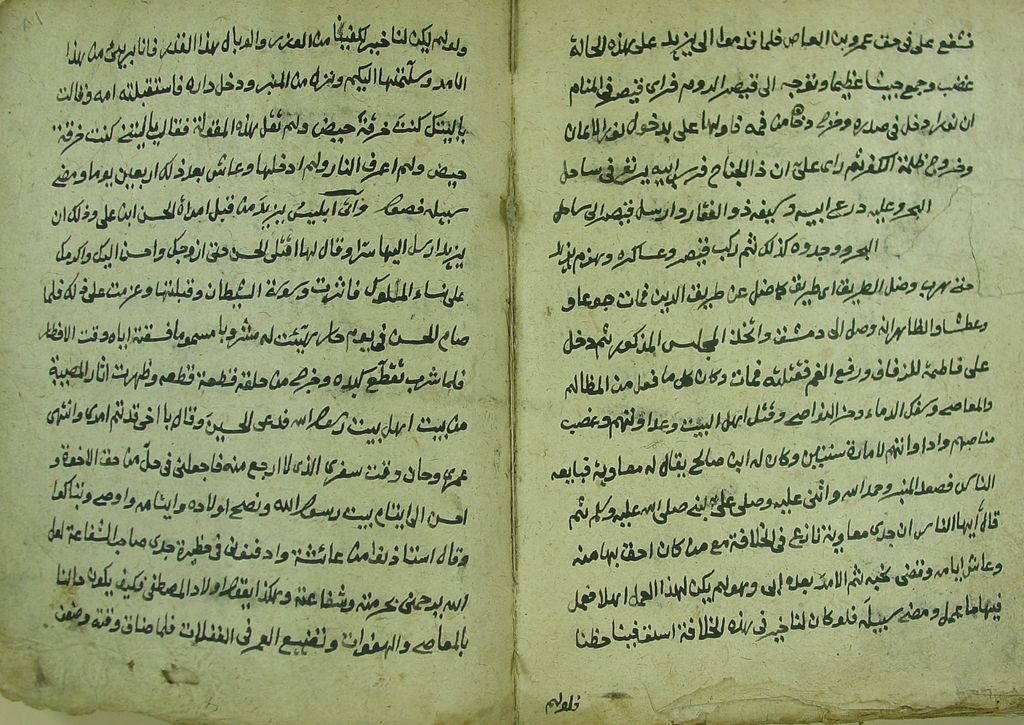 فشفع على فى حق عمرو بن العاص فلما قدموا الى يزيد على هذه الحالة
غضب وجمع جيشا عظيما وتوجه الى قيصر الروم فراى قيصر فى المنام
ان نورا دخل فى صدره وخرج من فمه على بدخول نور الايمان
وخروج ظلمة الكفر ثم راى على ان ذا الجناح فرس ابيه يرتفع فى ساحل
البحر وعليه درع ابيه وسيفه ذو الفقار وارسل قيصر الى ساحل
البحر ووجدوه كذلك ثم ركب قيصر وعساكره وهزم يزيد
حتى هرب وضل الطريق اى طريقا كما ضل عن طريق الدين فمات جوعا و
عطشا والظاهر انه وصل الى دمشق واتخذ المجلس المذكور ثم دخل
على فاطمة للزفاف ورفع الغم فقتلته فمات وكان كل ما فعل من المظالم
والمعاصى وسفك الدماء وقتل اهل البيت وعداوتهم وغضب
مناصبهم واذاوتهم لامارة سنتين وكان له ابن صالح يقال له معاوية فبايعه
الناس فصعد المنبر وحمد الله واثنى عليه وصلى على نبيه صلى الله عليه وسلم ثم
قال ايها الناس ان جدى معاوية نازع فى الخلافة مع من كان احق بها منه
وعاش ايامه وقضى نحبه ثم الامر بعده ابى وهو لم يكن لهذا العمل اهلا فعمل
فيها ما عمل ومضى سبيله فلو كان لنا خير فى هذه الخلافة استوفينا حظنا
فلو لم
ولو لم يكن لنا خير لكفينا من العذر والوبال بهذا القدر فانا برىء من هذا
الامر وسلمتها اليكم ونزل من المنبر ودخل داره فاستقبلته امه وقالت
يا ليتك كنت خرقة حيض ولم تقل بهذه المقولة فقال يا ليتنى كنت خرقة
حيض ولم اعرف النار ولم ادخلها وعاش بعد ذلك اربعين يوما ومضى
سبيله فصل وأتى ابليس يزيد من قبل امرأة الحسن ابن على وذلك ان
يزيد ارسل اليها سرا وقال لها اقتلى الحسن حتى ازوجك واحسن اليك واكرمك
على نساء الملوك فاثرت وسوسة الشيطان وقبلتها وعزمت على ذلك فلما
صام الحسن فى يوم حار هيئت له مشروبا مسموما فسقته اياه وقت الافطار
فلما شرب تقطع كبده وخرج من حلقه قطعة قطعة وظهرت اثار المصيبة
من بيت اهل بيت رسول الله فدعى الحسين وقال يا اخى قد تم امرى وانتهى
عمرى وحان وقت سفرى الذى لا ارجع منه فاجعلنى فى حل من حق الاخوة و
احسن الى ايتام بيت رسول الله ونصح اولاده وايتامه واوصى وتباكوا
وقال استاذنوا من عائشة وادفنونى فى حظيرة جدى صاحب الشفاعة لعل
الله يرحمنى بحرمته وشفاعته وهكذا يقول اولاد المصطفى فكيف يكون حالنا
بالمعاصى والهفوات وتضييع العمر فى الغفلات فلما ضاق وقته وضعف